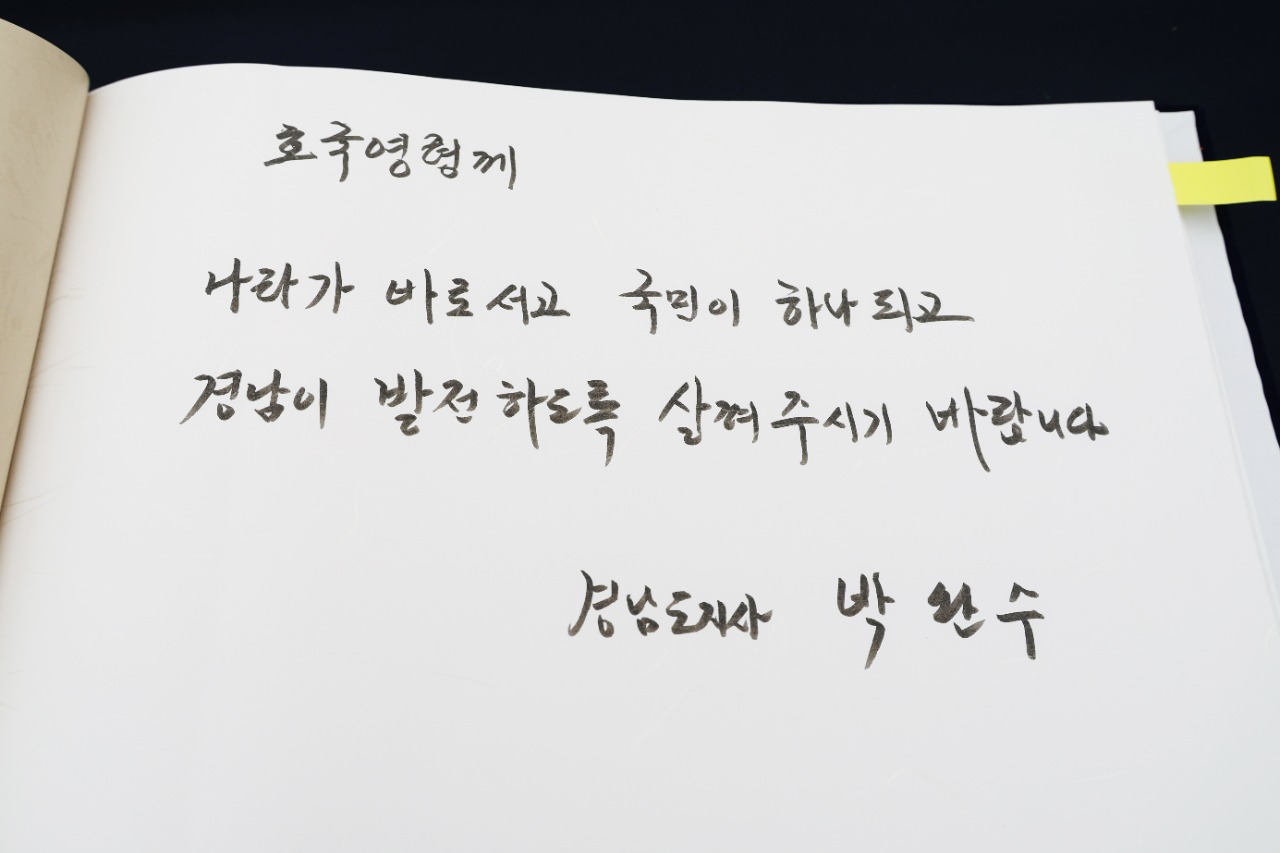 호국영령께
나라가 바로서고 국민이 하나되고
경남이 발전하도록 살펴주시기 바랍니다
경남도지사 박완수